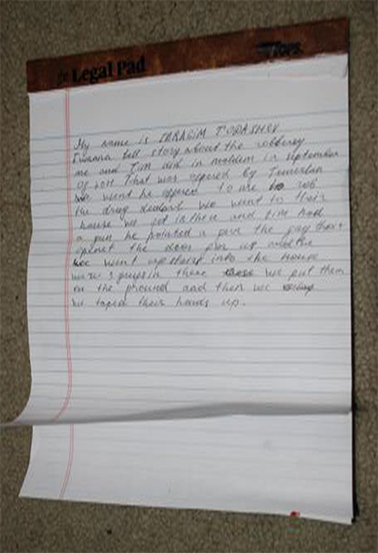 Legal Pad
TOPS
My name is IBRAGIM TODASHEV
I wanna tell story about the robbery
me and Tam did in in September
of 2011 That was by Tamerlan
he to me to rob
the drug dealers We went to their
house we got in there and Tam had
a gun he pointed a gun the guy that
opened the door for us and the
we went upstairs into the house
3 guys in there we put them
on the ground and then we
taped their hands up.